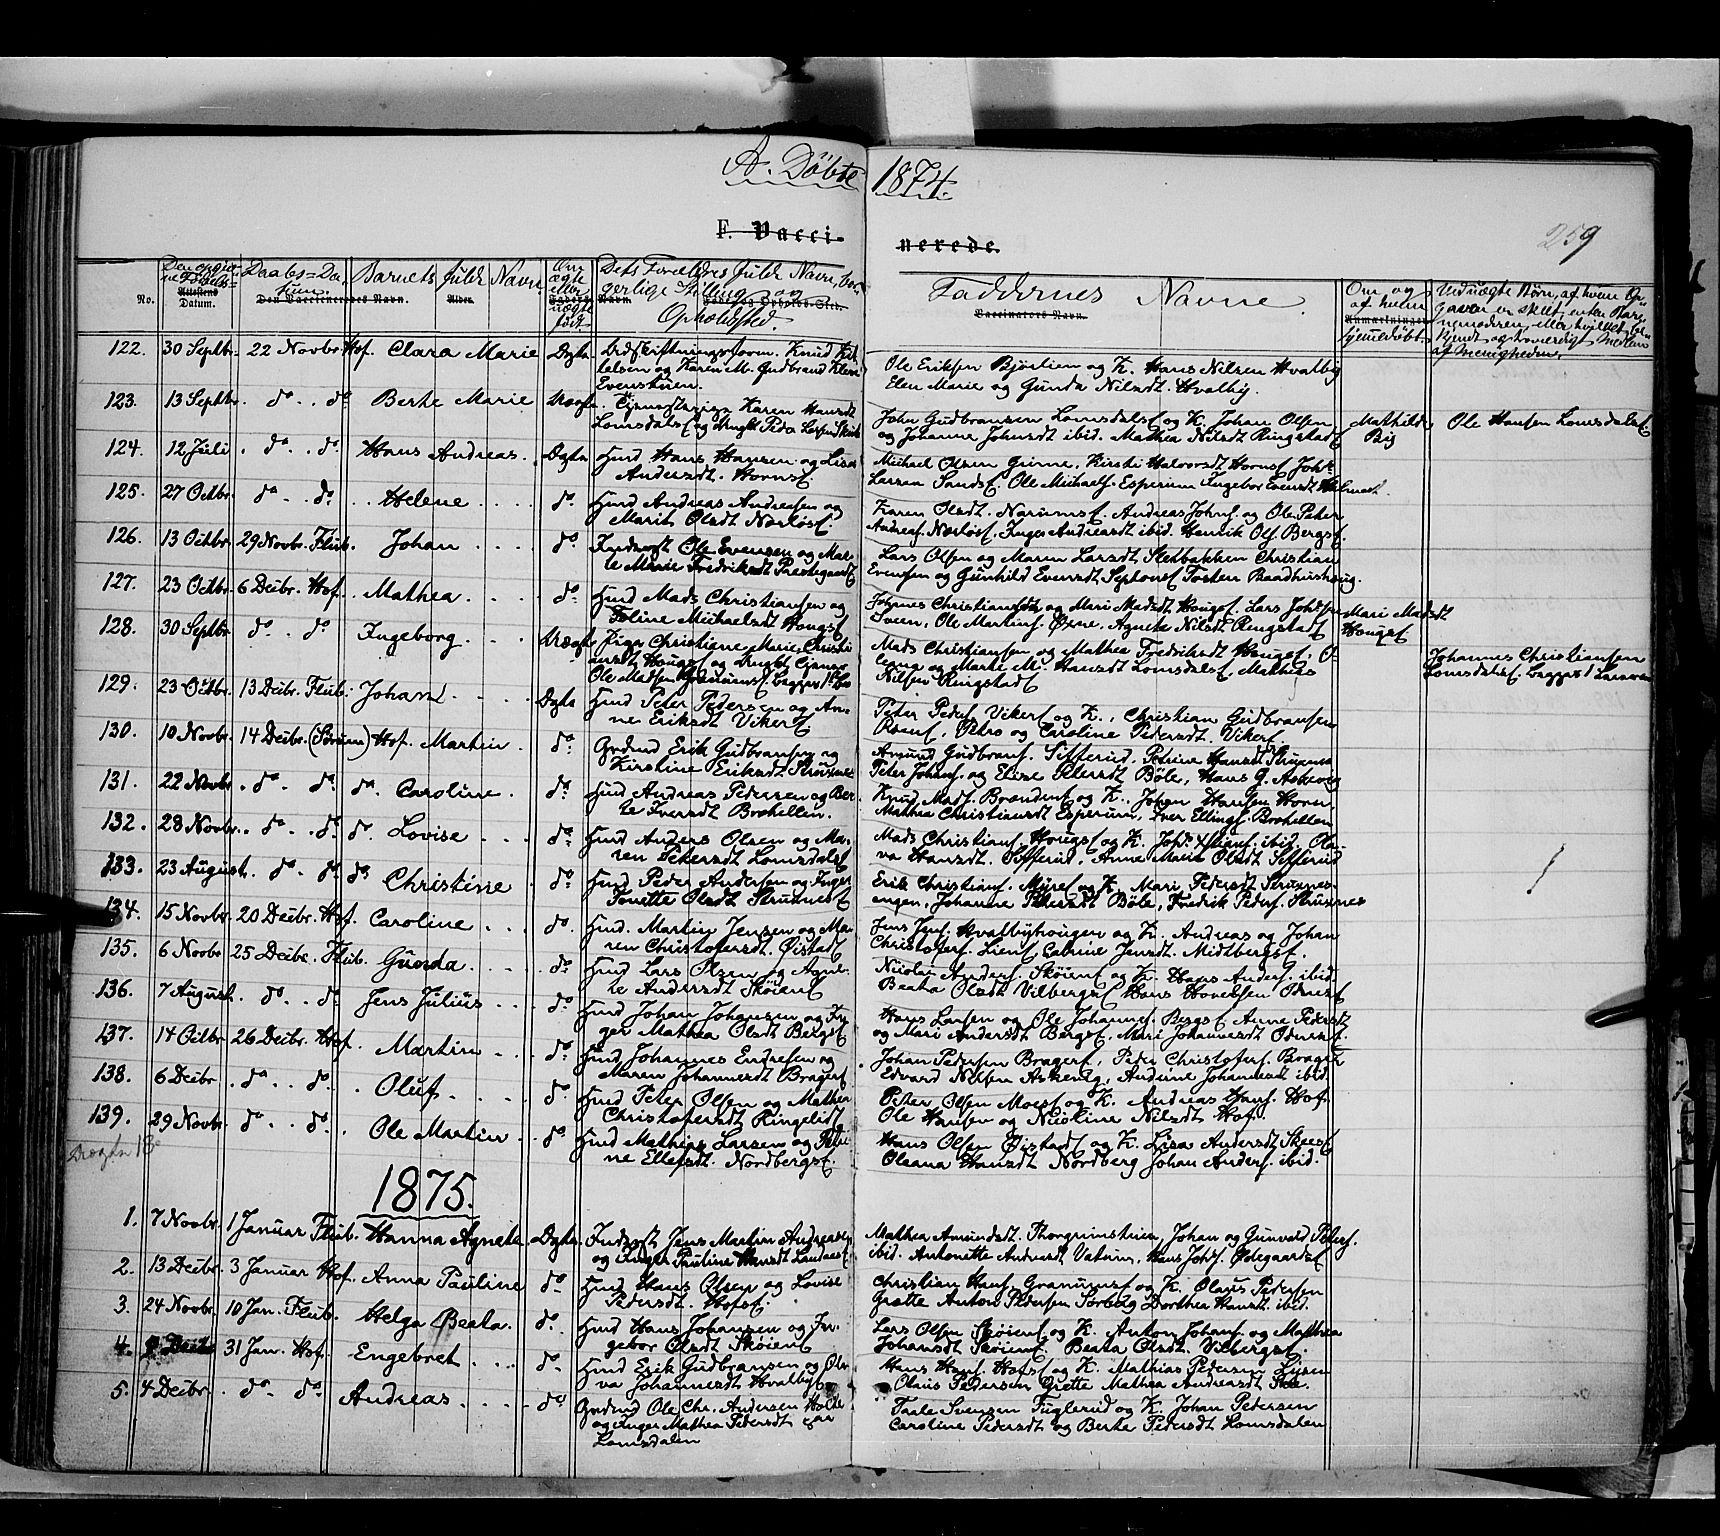 A. Döbte 1874.
F. Vacci- nerede.
259
No.
Attestens Datum.
Daabs-Da- tum.
Den Vaccineredes Navn.
Barnets fulde Navn
Alder.
Om ægte eller uægte født
Dets Forældres fulde Navne, bor-
gerlige Stilling og
Opholdsted.
Faddernes Navne.
Vaccinators Navn.
Om og af hvem hjemmedöbt.
Anmærkninger
122. 30 Septbr. 22 Novbr. Hof. Clara Marie Ægta Knud og Karen M. Gudbrand
Evenstuen. Ole Eriksen Bjørlien og K. Hans Nilsen Hvalby
Elen Marie og Gunda Nilsdt. Hvalby.
123. 13 Septbr. do. do. Berte Marie Uægte Karen Hansdt
Lomsdalsf og Ungkl Peder Larsen John Gudbransen Lomsdalsf og K. Johan Olsen Mathilde Ole Hansen Lomsdalsf
og Johanne Johnsdt ibid. Mathea Nilsdt Ringstadf Big
124. 12 Juli do. do. Hans Andreas. Ægta Hmd Hans Hansen og Lisa
Andersdt. Hornsf. Michael Olsen Kirsti Halvorsdt Hornsf Johs.
Larsen Sandsf. Ole Michaelsf. Esperum Ingebor Evensdt
125. 27 Octbr. do. do. Helene do. Hmd Andreas Andreasen og
Marit Olsdt Narlösf. Karen Olsdt. Narumsf. Andreas Johnsf. og Ole Peter
Andreasf. Narlösf. Inger Andreasdt ibid. Henrik Olsf. Bergsf.
126. 13 Octbr. 29 Novbr. Flub. Johan do. Inderst Ole Evensen og Mar-
te Marie Fredriksdt Præstegaardsf Lars Olsen og Maren Larsdt Sletbakken Christian
Evensen og Gunhild Evensdt Tosten Raadhushaug.
127. 23 Octbr. 6 Decbr. Hof. Mathea do. Hmd Mads Christiansen og
Michaelsdt Hougsf Johnes Christiansen og Mari Madsdt Hougsf. Lars Mari Madsdt
Sveen, Ole Martinsf Øine, Agnete Nilsdt Ringstadsf Hougsf
128. 30 Septbr. do. do. Ingeborg Uægte Pige Christiane Marie Christi-
ansdt Hougsf og Ungkl
Ole Madsen Mads Christiansen og Mathea Fredriksdt Hougsf. O-
leana og Marte M. Hansdt Lomsdalsf, Mathias
Nilsen Ringstadf Johannes Christiansen
Lomsdalsf.
129. 23 Octbr. 13 Decbr. Flub. Johan Ægta Hmd Peter Pedersen og An-
ne Eriksdt Vikersf. Peter Pedersf Vikersf og K., Christian Gudbransen
Petro og Caroline Pedersdt Vikersf.
130. 10 Novbr. 14 Decbr. (Sörum) Hof. Martin. do. Grdmd Erik Gudbransen og
Kirstine Eriksdt Struxnes Amund Gudbransf. Sifferud. Petrine Hansdt Struxnes
Peter Johansf. og Elise Petersdt Böle, Hans G. Askevig
131. 22 Novbr. do. do. do. Caroline. do. Hmd Andreas Pedersen og Ber-
te Iversdt. Brohellen. Knud Madsf. Brændenf og K. Johan Hansen Horn.
Mathea Christiansdt Esperum, Iver Ellingsf. Brohellen
132. 28 Novbr. do. do. do. Lovise do. Hmd Anders Olsen og Ma-
ren Petersdt Lomsdalsf Mads Christiansf. Hougsf og K. Johs. Xstiansf. ibid. Ol-
va Hansdt. Sifferud, Anne Marie Olsdt Sifferud
133. 23 August. do. do. do. Christine do. Hmd Peder Andersen og Inger
Tonette Olsdt Struxnesf Erik Christiansf. Myref og K. Mari Pedersdt Struxnes-
engen, Johanne Petersdt Böle, Fredrik Pedersf. Struxnes
134. 15 Novbr. 20 Decbr. Hof. Caroline do. Hmd. Martin Jensen og Ma-
ren Christofersdt. Øistadf Jens Jensf. Hvalbyhougen og K. Andreas og Johan
Christofersf. Lienf Cabrine Jensdt. Midtbergsf.
135. 6 Novbr. 25 Decbr. Flub. Gunda. do. Hmd Lars Olsen og Agne-
te Andersdt Sköienf Nicolai Andersf. Sköienf og K. Hans Andersf. ibid.
Beata Olsdt Vilbergsf Hans Hovelsen Odnesf
136. 7 August. do. do. Jens Julius do. Hmd Johan Johansen og In-
ger Mathea Olsdt Bergsf. Hans Larsen og Ole Johannesf. Bergsf Anne Pedersdt
og Mari Andersdt Bergsf, Mari Johannesdt Odnesf.
137. 14 Octbr. 26 Decbr. Hof. Martin do. Hmd Johannes Endresen og
Maren Johannesdt Bragerf Johan Pedersen Bragerf, Peder Christofersf. Brager
Edvard Nilsen Askevig, Andrine Johannesdt ibid.
138. 6 Decbr do. do. Oluf do. Hmd Peter Olsen og Mathea
Christofersdt Ringelidf Peter Olsen Moesf og K. Andreas Hansf. Hof.
Ole Hansen og Nicoline Nilsdt Hof.
139. 29 Novbr. do. do. Ole Martin do. Hmd Mathias Larsen og Petri-
ne Ellefsdt. Nordbergsf. Hans Olsen Øistadf og K. Lisa Andersdt Skeesf
Oleana Hansdt Nordberg Johan Andersf. ibid.
Uægta 18
1875.
1. 7 Novbr. 1 Januar Flub. Hanna Agnete Ægta. Inderst Jens Martin Andreasen
og Inger Pauline Hansdt Landaasf Mathea Amundsdt. Thorgrimstuen, Johan og Gunvald Petersf.
ibid. Antonette Andersdt Vatum, Hans Johsf. Ødegaardsf
2. 13 Decbr. 3 Januar Hof. Anna Pauline do. Hmd Hans Olsen og Lovise
Pedersdt. Hofsf. Christian Hansf. Granumsf og K. Olaus Pedersen
Grette Anton Pedersen Sörberg Dorthea Hansdt. ibid.
3. 24 Novbr. 10 Jan. Flub. Helga Beata. do. Hmd Hans Johansen og In-
gebor Olsdt Sköienf Lars Olsen Sköienf og K. Anton Johansf. og Mathea
Johansdt Sköienf. Beata Olsdt. Vilbergsf.
4. 31 Jan. Hof. Engebret do. Hmd Erik Gudbransen og Ol-
va Johannesdt Hvalbyf Hans Hansf. Hofsf og K. Mathias Pedersen
Olaus Pedersen Grette Mathea Andreasdt
5. 4 Decbr. do. do. Andreas do. Grdmd Ole Chr. Andersen
og Inger Mathea Pedersdt
Lomsdalen Taale Svensen Fuglerud og K. Johan Pedersen
Caroline Pedersdt og Berte Pedersdt Lomsdalen